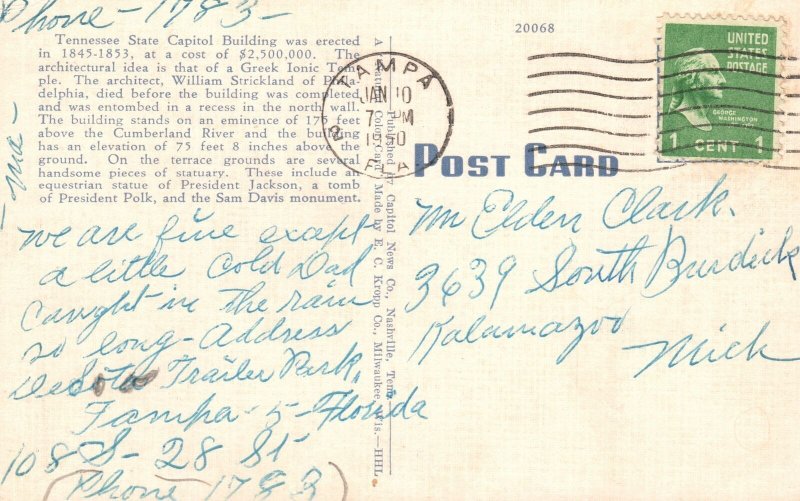 Phone - 1783 -
Tennessee State Capitol Building was erected
in 1845-1853, at a cost of $2,500,000. The
architectural idea is that of a Greek Ionic Tem-
ple. The architect, William Strickland of Phila-
delphia, died before the building was completed
and was entombed in a recess in the north wall.
The building stands on an eminence of 175 feet
above the Cumberland River and the building
has an elevation of 75 feet 8 inches above the
ground. On the terrace grounds are several
handsome pieces of statuary. These include an
equestrian statue of President Jackson, a tomb
of President Polk, and the Sam Davis monument.
- Ma -
We are fine except
a little Cold Dad
Caught in the rain
so long - Address
DeSoto Trailer Park,
Tampa - 5 - Florida
108 S - 28 St -
(Phone 1783)
Published by Capitol News Co., Nashville, Tenn.
A "Natural Color" Card Made by E. C. Kropp Co., Milwaukee, Wis.—HHL
20068
TAMPA
JAN 10
7 PM
1950
2
FLA
UNITED
STATES
POSTAGE
GEORGE
WASHINGTON
1 CENT 1
POST CARD
Mr Elden Clark.
3639 South Burdick
Kalamazoo
Mich